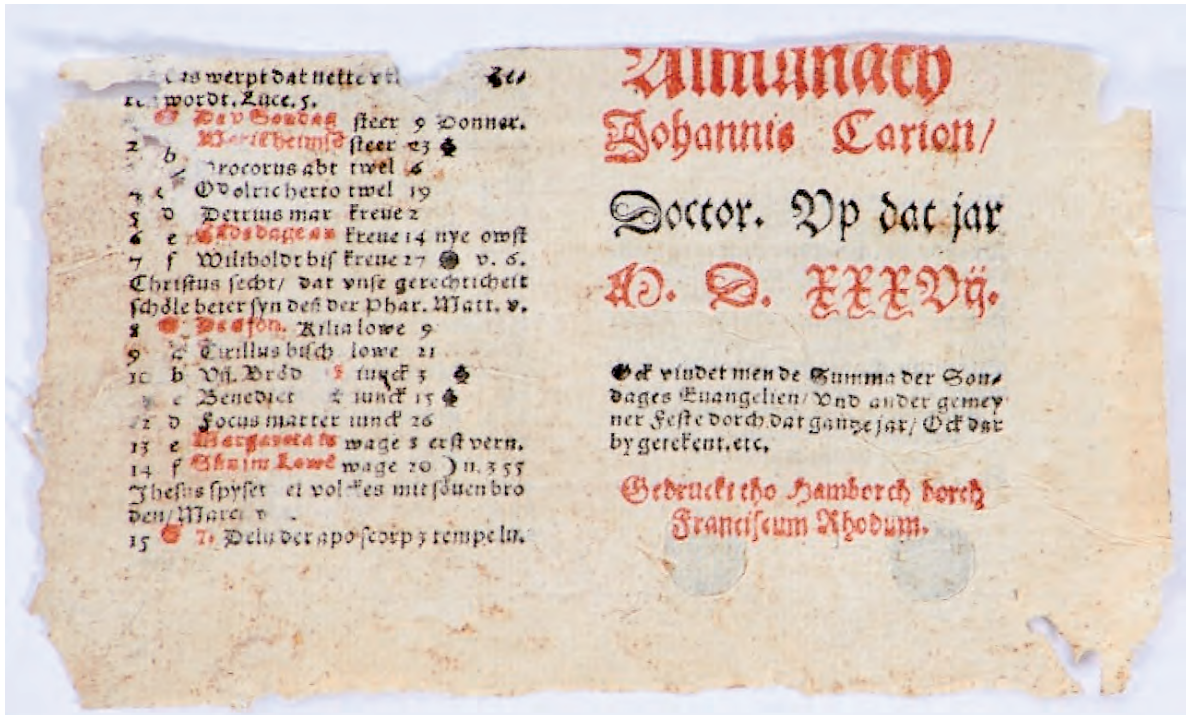 werpt dat nette
wordt. Luce. 5.
Sondag steer 9 Donner.
2 steer 23
b abt twel 6
Odolric herto twel 19
5 d Petrius mar kreue 2
6 e kreue 14 nye owst
7 f Wiltholdt bis kreue 27 v. 6.
Christus secht/ dat vnse gerechticheit
schöle beter syn deñ der Phar. Matt. v.
8 Kilia lowe 9
9 Cirillus bisch lowe 21
10 b Vij. Bröd iunck 3
e Benedict iunck 15
12 d Focus marter iunck 26
13 e wage 8 erst vern.
14 f Lowē wage 20 ) n. 3 55
Jhesus spyset mit söuen bro
den/ Marci
15 Delu der apo scorp 3 tempelu.
Almanach
Johannis Carion/
Doctor. Vp dat jar
M. D. XXXVij.
Ock vindet men de Summa der Son⸗
dages Euangelien/ vnd ander gemey
ner Feste dorch dat gantze jar/ Ock dar
by gerekent. etc.
Gedruckt tho Hamborch dorch
Franciscum Rhodum.